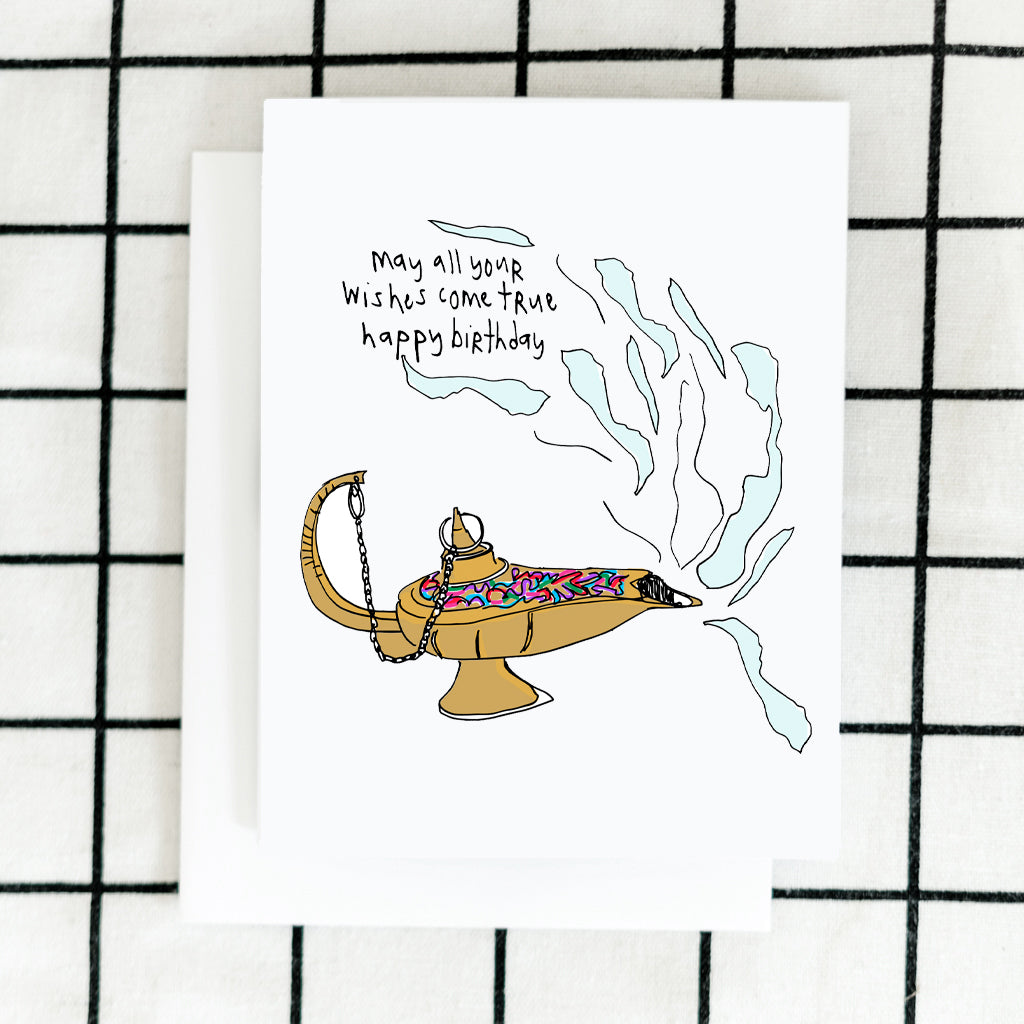 May all youR
Wishes come tRue
happy birthday